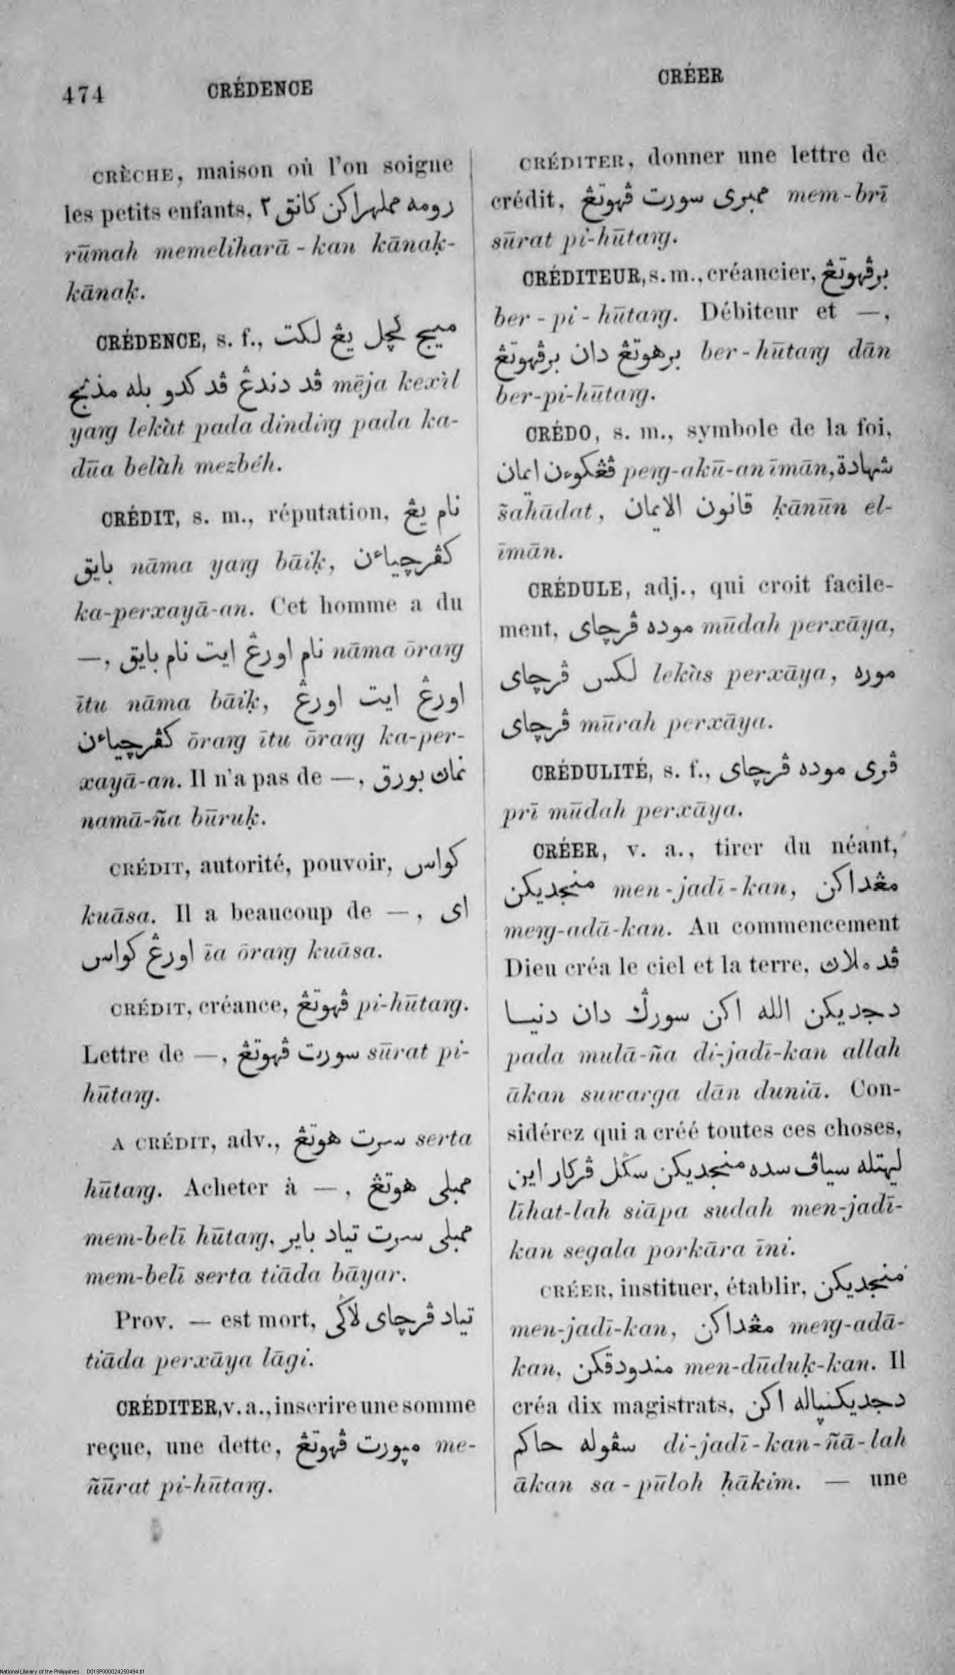 474
CRÉDENCE
CRÉER
CRÈCHE, maison où l'on soigne
les petits enfants, رومه مملهراكن كانق ٢
rūmah memeliharā-kan kānaḳ-
kānaḳ.
CRÉDENCE, s. f., ميج كچل يڠ لكت
ڤد دندڠ ڤد كدو بله مذبح mēja kexìl
yaŋ lekàt pada dindiŋ pada ka-
dūa belàh mezbéh.
CRÉDIT, s. m., réputation, نام يڠ
بايق nāma yaŋ bāiḳ, كڤرچياءن
ka-perxayā-an. Cet homme a du
—, نام اورڠ ايت نام بايق nāma ōraŋ
ītu nāma bāiḳ, اورڠ ايت اورڠ
كڤرچياءن ōraŋ ītu ōraŋ ka-per-
xayā-an. Il n'a pas de —, نمان بورق
namā-ña būruḳ.
CRÉDIT, autorité, pouvoir, كواس
kuāsa. Il a beaucoup de —, اى
اورڠ كواس īa ōraŋ kuāsa.
CRÉDIT, créance, ڤهوتڠ pi-hūtaŋ.
Lettre de —, سورت ڤهوتڠ sūrat pi-
hūtaŋ.
A CRÉDIT, adv., سرت هوتڠ serta
hūtaŋ. Acheter à —, ممبلى هوتڠ
mem-belī hūtaŋ, ممبلى سرت تياد باير
mem-belī serta tiāda bāyar.
Prov. — est mort, تياد ڤرچاى لاݢى
tiāda perxāya lāgi.
CRÉDITER, v. a., inscrire une somme
reçue, une dette, مڽورت ڤهوتڠ me-
ñūrat pi-hūtaŋ.
CRÉDITER, donner une lettre de
crédit, ممبرى سورت ڤهوتڠ mem-brī
sūrat pi-hūtaŋ.
CRÉDITEUR, s. m., créancier, برڤهوتڠ
ber-pi-hūtaŋ. Débiteur et —,
برهوتڠ دان برڤهوتڠ ber-hūtaŋ dān
ber-pi-hūtaŋ.
CRÉDO, s. m., symbole de la foi,
ڤڠكوءن ايمان peŋ-akū-an īmān, شهادة
šahādat, قانون الايمان ḳānūn el-
īmān.
CRÉDULE, adj., qui croit facile-
ment, موده ڤرچاى mūdah perxāya,
لكس ڤرچاى lekàs perxāya, موره
ڤرچاى mūrah perxāya.
CRÉDULITÉ, s. f., ڤرى موده ڤرچاى
prī mūdah perxāya.
CRÉER, v. a., tirer du néant,
منجديكن men-jadī-kan, مڠداكن
meŋ-adā-kan. Au commencement
Dieu créa le ciel et la terre, ڤد ملان
دجديكن الله اكن سورݢ دان دنيا
pada mulā-ña di-jadī-kan allah
ākan suwarga dān duniā. Con-
sidérez qui a créé toutes ces choses,
ليهتله سياڤ سده منجديكن سݢل ڤركار اين
līhat-lah siāpa sudah men-jadī-
kan segala porkāra īni.
CRÉER, instituer, établir, منجديكن
men-jadī-kan, مڠداكن meŋ-adā-
kan, مندودقكن men-dūduḳ-kan. Il
créa dix magistrats, دجديكنڽاله اكن
سڤوله حاكم di-jadī-kan-ñā-lah
ākan sa-pūloh ḥākim. — une
National Library of the Philippines